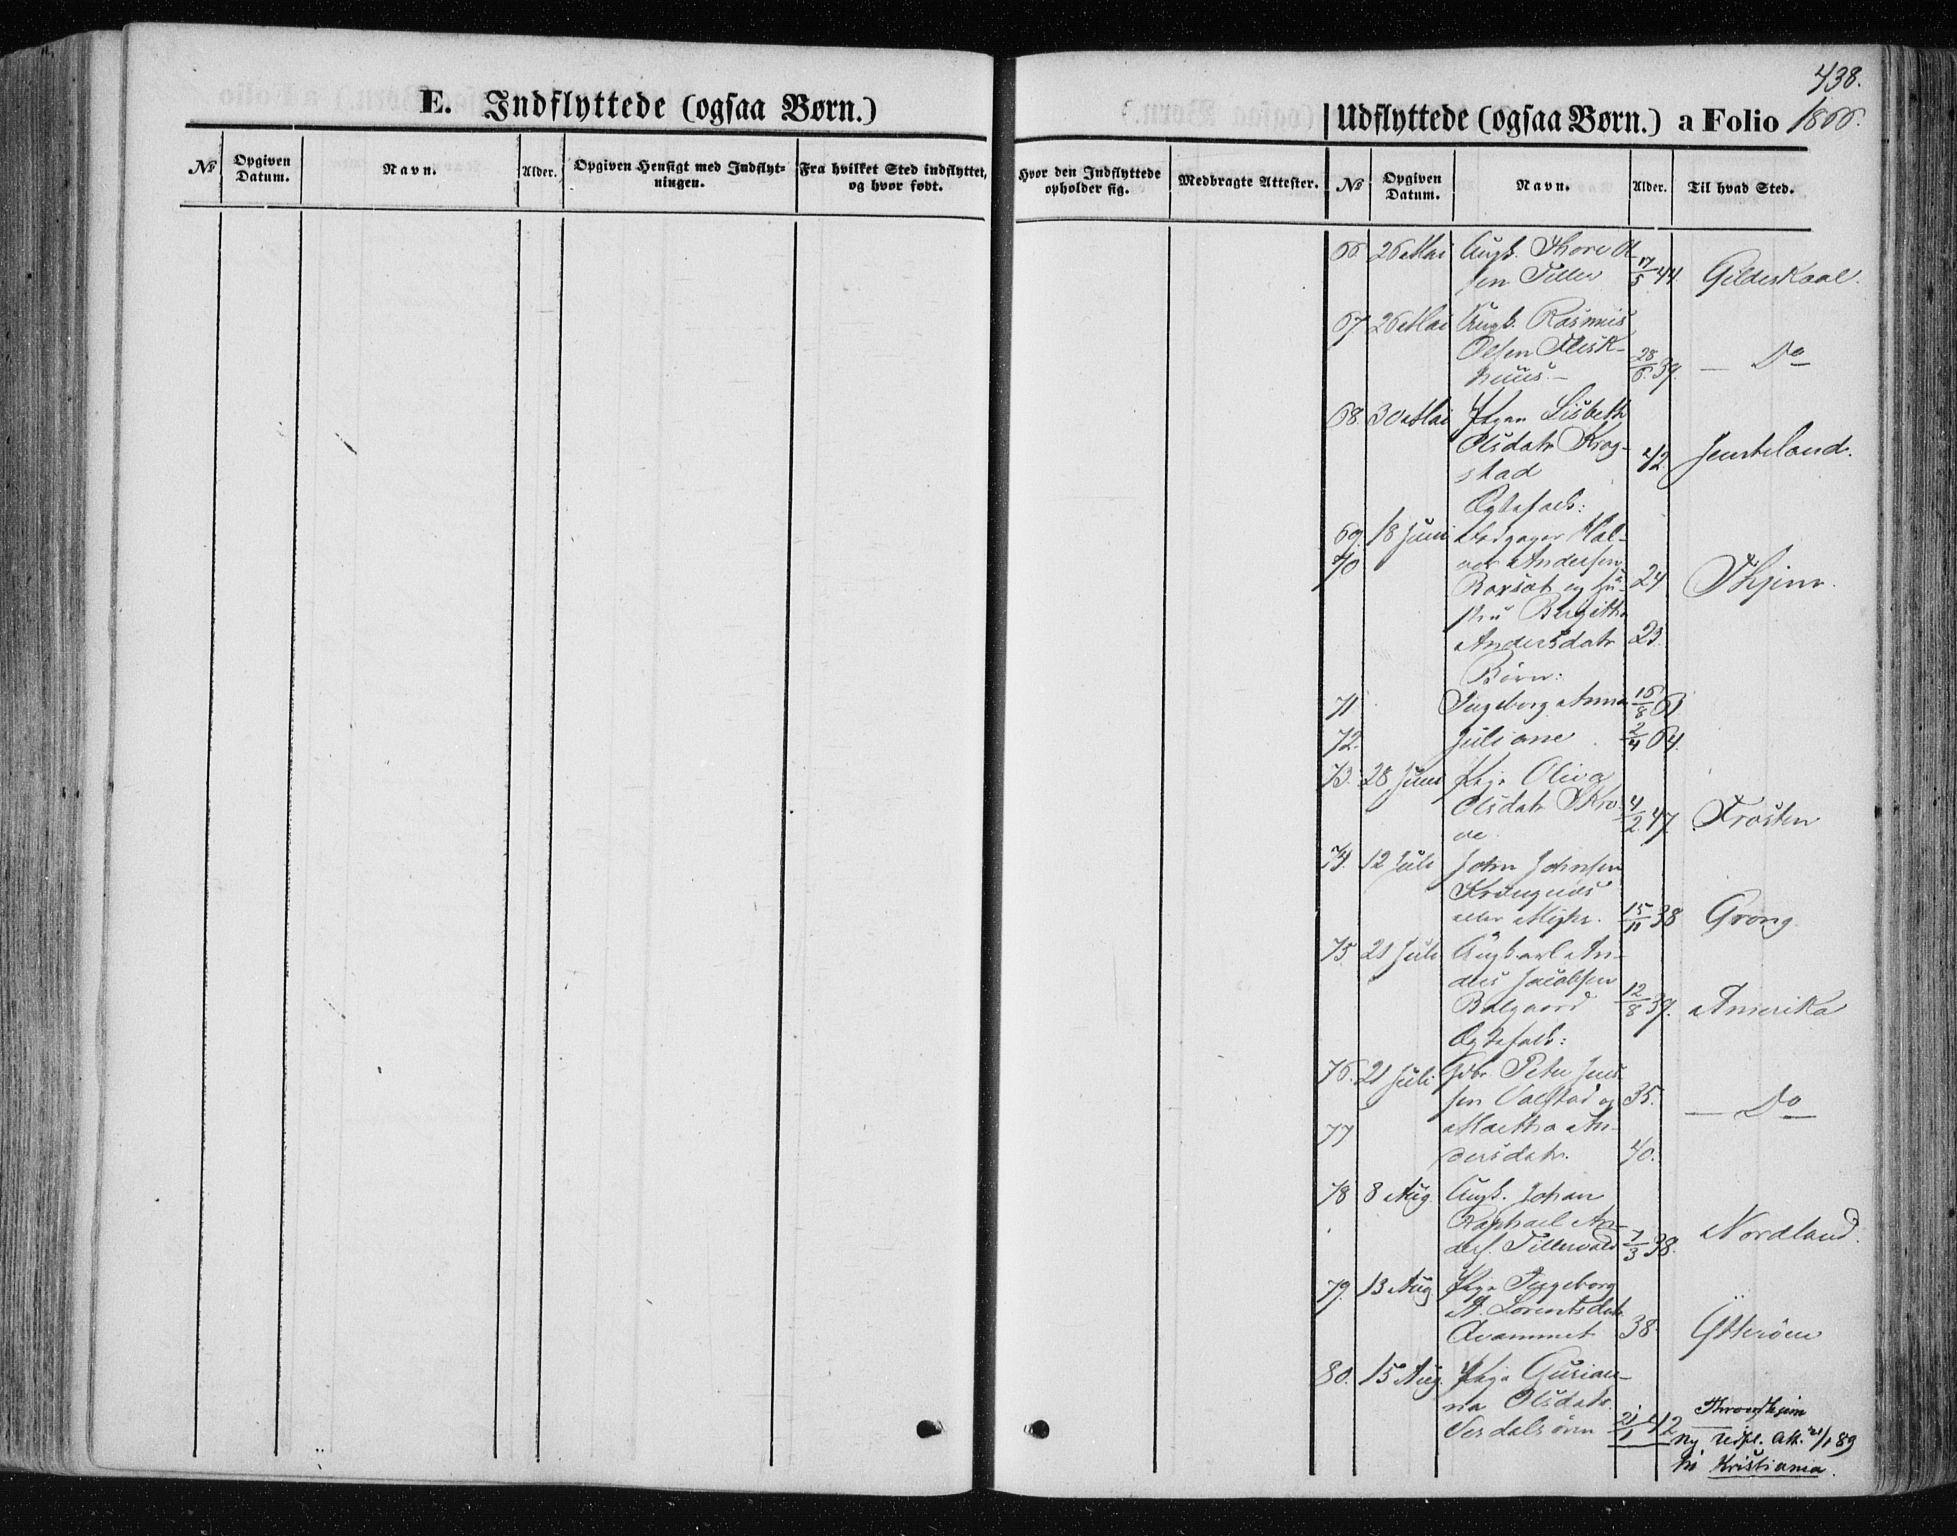 438.
E. Indflyttede (ogsaa Børn.)
Udflyttede (ogsaa Børn.) a Folio 1866.
№ Opgiven Datum. Navn. Alder. Opgiven Hensigt med Indflyt-
ningen. Fra hvilket Sted indflyttet, og hvor født.
Hvor den Indflyttede opholder sig. Medbragte Attester. № Opgiven Datum. Navn. Alder. Til hvad Sted.
66. 26 Mai Ungk. Thore Ol-
sen Tiller 17/5 44. Gildeskaal.
67. 26 Mai Ungk. Rasmus
Olsen Flesk-
huus.— 28/6. 39. — Do —
68. 30 Mai Pigen Lisbeth
Olsdatr Krog-
stad 42. Jemteland.
Ægtefolk:
69. 18 Juni Hal-
70 vor Andersen
og Hu- 24 Thjem.
stru Birgitha
Andersdatr 23.
Børn:
71 Ingeborg Anna 16/8 61
72. Juliane 2/4 64.
73. 28 Juni Pige Oliva
Olsdatr Skro-
ve 4/2 47. Frosten
74. 12 Juli John Johnsen
eller 15/11 38 Grong.
75. 21 Juli Ungkarl An-
ders Jacobsen
Balgaard 12/8 39. Amerika
Ægtefolk:
76. 21 Juli Peter Jen-
sen Valstad og 35. — Do —
77 Martha An-
dersdatr. 40.
78 8 Aug. Ungk. Johan
Raphael An-
ders. Tillervald 7/3 38. Nordland.
79. 13 Aug Pige Ingeborg
M. Lorentsdatr
Qvammet 38. Ytterøen
80. 15 Aug. Pige Gurian-
na Olsdatr.
Verdalsøren 21/1 42 Throndhjem
Ny Udfl. Att. 21/1 89
til Kristiania.